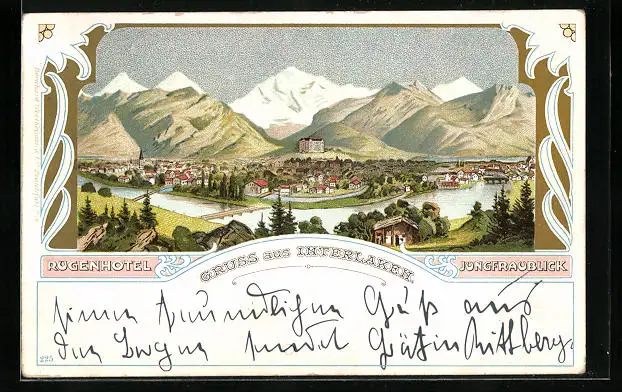 RUGENHOTEL
GRUSS aus INTERLAKEN.
JUNGFRAUBLICK
Einen freundlichen Gruß aus
den Bergen sendet Gräfin Rittberg.
225